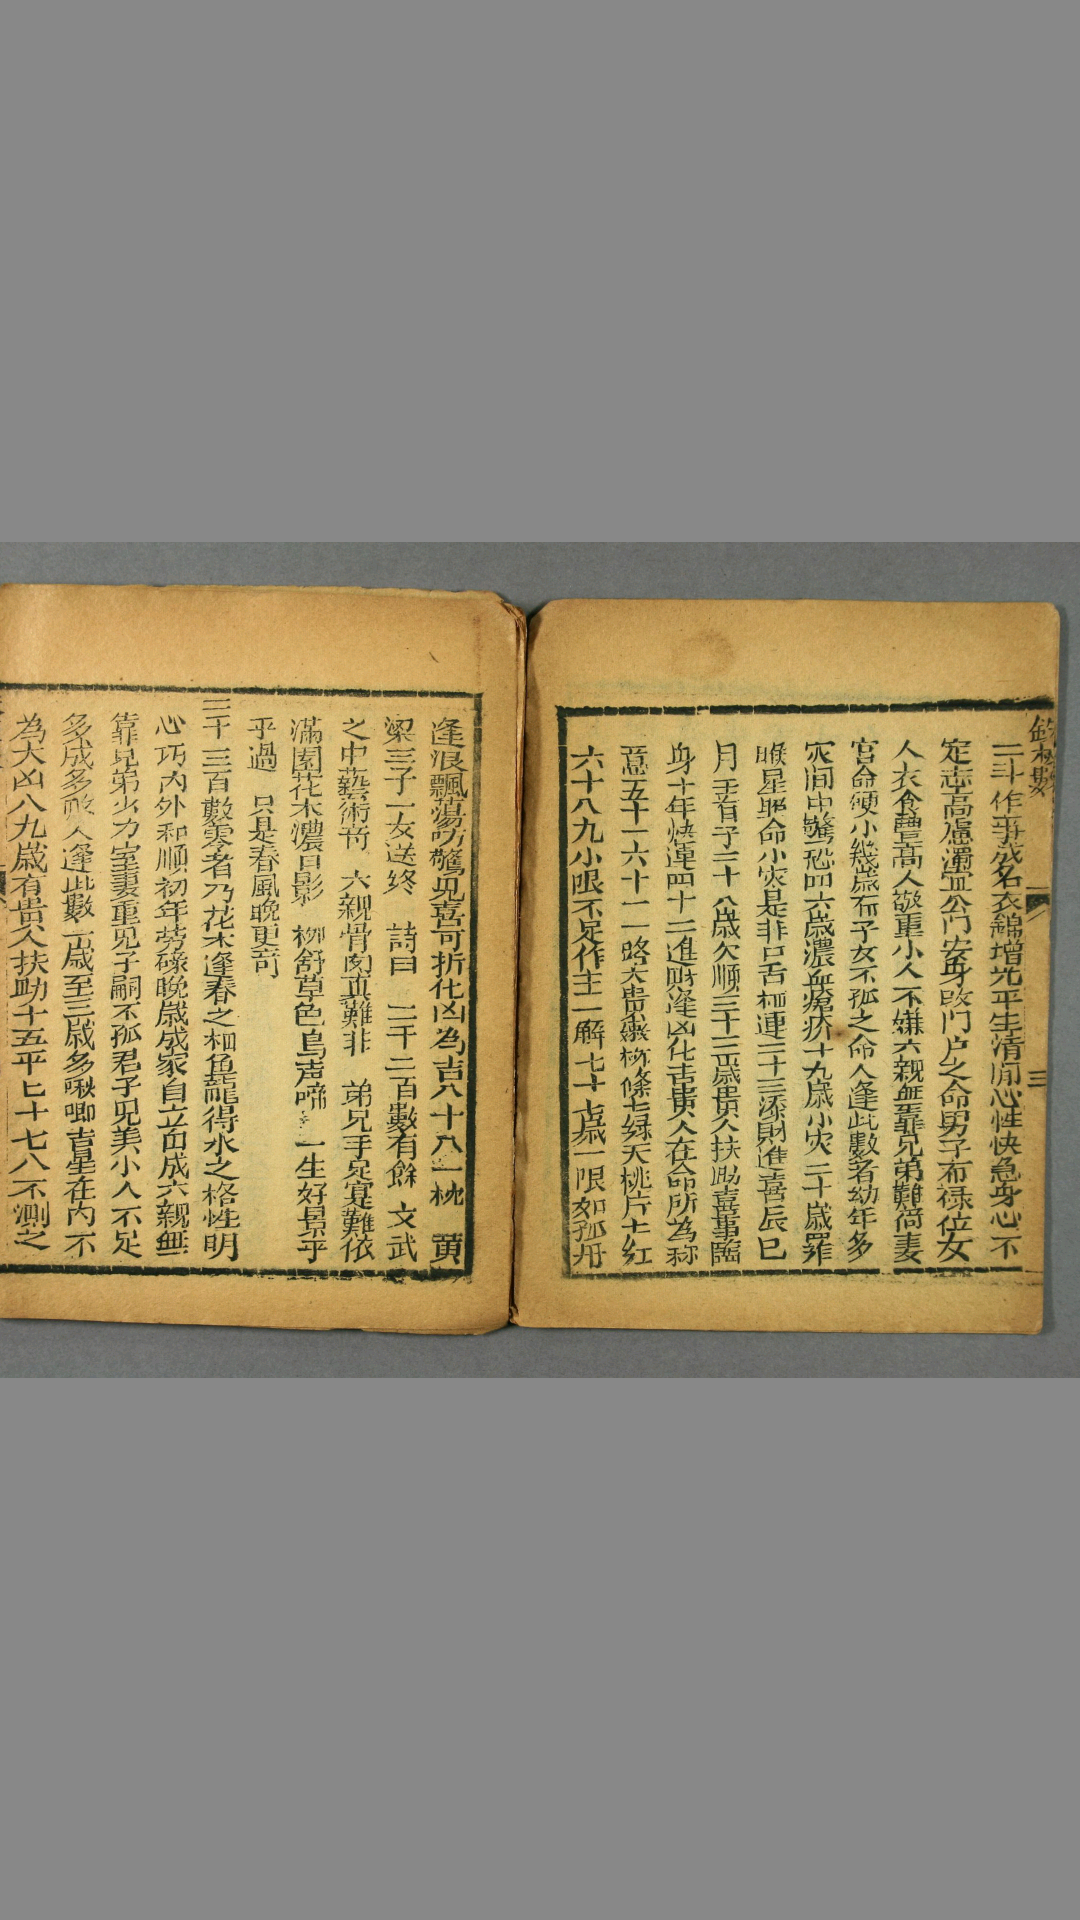 二斗作事成名衣錦增光平生清閒心性快急身心不
定志高慮濁宜公門安身改門戶之命男子有祿位女
人衣食豐高人敬重小人不嫌六親無靠兄弟難倚妻
宮命硬小幾歲有子女不孤之命人逢此數者幼年多
灾间中驚恐四六歲濃血瘡疥十九歲小灾二十歲羅
睺星照命小灾是非口舌相連二十三添財進喜辰巳
月生貴子二十八歲欠順三十三歲貴人扶助喜事臨
身十年快運四十二進財逢凶化吉貴人在命所為称
意五十一六十一一路大貴
六十八九小限不足作主一解七十七歲一限如孤舟
逢浪飄蕩防驚見喜可折化凶為吉八十八一枕 黄
梁三子一女送终 詩曰 二千二百數有餘 文武
之中藝術竒 六親骨肉真難非 弟兄手足寔難依
滿園花木濃日影 柳舒草色鳥声啼 一生好景乎
乎過 只是春風晚更竒
二千三百數零者乃花木逢春之相魚龍得水之格性明
心巧内外和順初年勞碌晚歲成家自立而成六親無
靠兄弟少力室妻重見子嗣不孤君子見美小人不足
多成多敗人逢此數一歲至三歲多啾唧吉星在内不
為大凶八九歲有貴人扶助十五平七十七八不測之